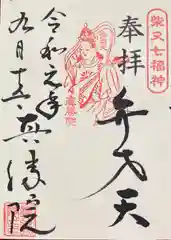 柴又七福神
奉拝
弁才天
令和元年
九月十五日
真勝院